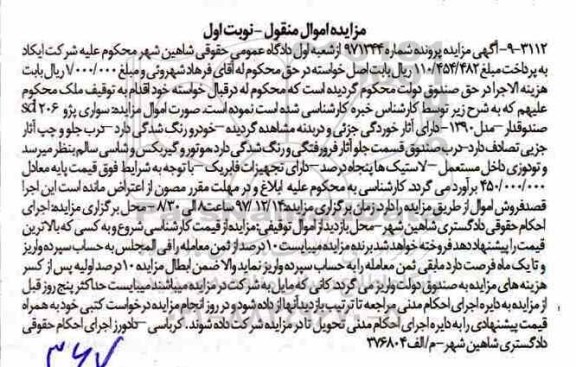 مزایده اموال منقول - نوبت اول
۳۱۱۲-۹- آگهی مزایده پرونده شماره ۹۷۱۳۴۴ از شعبه اول دادگاه عمومی حقوقی شاهین شهر محکوم علیه شرکت ایکاد
به پرداخت مبلغ ۱۱۰/۴۵۴/۴۸۲ ریال بابت اصل خواسته در حق محکوم له آقای فرهاد شهروئی و مبلغ ۷/۰۰۰/۰۰۰ ریال بابت
هزینه الاجرا در حق صندوق دولت محکوم گردیده است که محکوم له در قبال خواسته خود اقدام به توقیف ملک محکوم
علیهم که به شرح زیر توسط کارشناس خبره کارشناسی شده است نموده است. صورت اموال مزایده: سواری پژو ۲۰۶ sd
صندوقدار - مدل ۱۳۹۰- دارای آثار خوردگی جزئی و در بدنه مشاهده گردیده - خودرو رنگ شدگی دارد - درب جلو و چپ آثار
جزیی تصادف دارد - درب صندوق قسمت جلو آثار فرورفتگی و رنگ شدگی دارد موتور و گیربکس و شاسی سالم بنظر میرسد
و تودوزی داخل مستعمل - لاستیک ها پنجاه درصد - دارای تجهیزات فابریک - با توجه به شرایط فوق قیمت پایه معادل
۴۵۰/۰۰۰/۰۰۰ برآورد می گردد. کارشناسی به محکوم علیه ابلاغ و در مهلت مقرر مصون از اعتراض مانده است این اجرا
قصد فروش اموال از طریق مزایده را دارد زمان برگزاری مزایده: ۹۷/۱۲/۱۴ ساعت ۸ الی ۸/۳۰ - محل برگزاری مزایده: اجرای
احکام حقوقی دادگستری شاهین شهر - محل بازدید از اموال توقیفی: مزایده از قیمت کارشناسی شروع و به کسی که بالاترین
قیمت را پیشنهاد دهد فروخته خواهد شد برنده مزایده میبایست ۱۰ درصد از ثمن معامله را فی المجلس به حساب سپرده واریز
و تا یک ماه فرصت دارد مابقی ثمن معامله را به حساب سپرده واریز نماید والا ضمن ابطال مزایده ۱۰ درصد اولیه پس از کسر
هزینه های مزایده به صندوق دولت واریز می گردد کانی که مایل به شرکت در مزایده میباشند میبایست حداکثر پنج روز قبل
از مزایده به دایره اجرای احکام مدنی مراجعه تا ترتیب بازدید آنها از داده شود و در روز انجام مزایده درخواست کتبی خود به همراه
قیمت پیشنهادی را به دایره اجرای احکام مدنی تحویل تا در مزایده شرکت داده شوند. کرباسی - دادورز اجرای احکام حقوقی
دادگستری شاهین شهر - م/الف ۳۷۶۸۰۴
۳۶۷